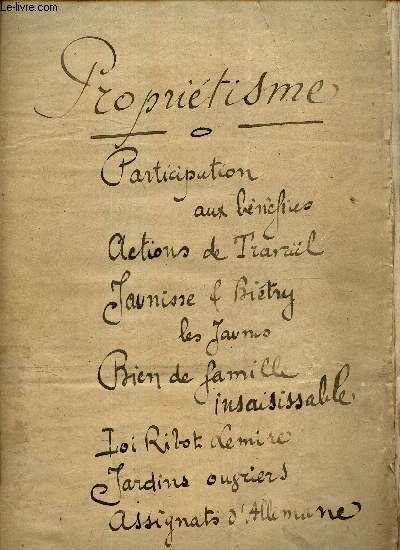 © Le-livre.com
Propriétisme
Participation
aux bénéfices
Actions de Travail
Jaunisse & Biétry
les Jaunes
Bien de famille
insaisissable
Loi Ribot Lemire
Jardins ouvriers
Assignats d'Allemagne